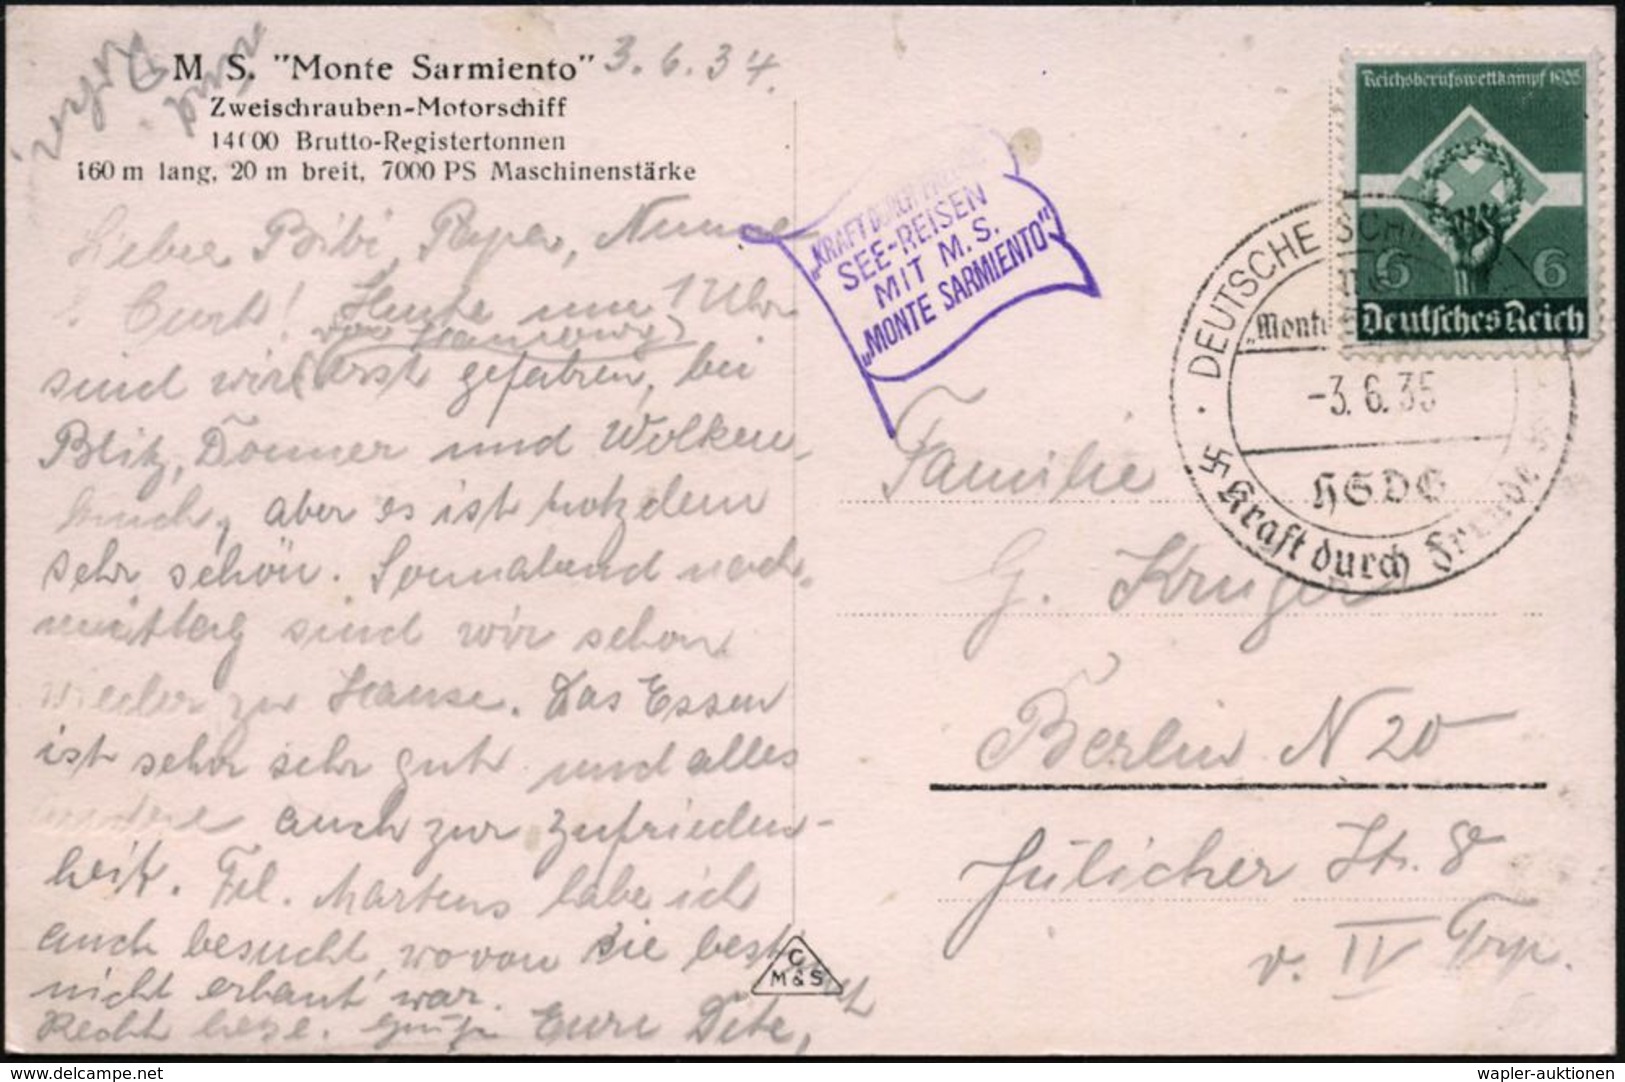 M. S. "Monte Sarmiento" 3. 6. 34.
Zweischrauben-Motorschiff
14000 Brutto-Registertonnen
160 m lang, 20 m breit, 7000 PS Maschinenstärke
Liebe Bibi, Papa,
Curt! Heute um 1 Uhr
sind wir (von Hamburg) erst gefahren, bei
Blitz, Donner und Wolken-
bruch, aber es ist trotzdem
sehr schön. Sonnabend nach-
mittag sind wir schon
wieder zu Hause. Das Essen
ist sehr sehr gut und alles
andere auch zur Zufrieden-
heit. Frl. Martens habe ich
auch besucht, wovon sie bestimmt
nicht erbaut war.
Recht herzl. Grüße Eure Dete,
C
M&S
"KRAFT DURCH FREUDE"
SEE-REISEN
MIT M. S.
"MONTE SARMIENTO"
Reichsberufswettkampf 1935
6 6
Deutsches Reich
DEUTSCHE SCHI
"Monte
-3. 6. 35
HSDG
卐 Kraft durch Freude 卐
Familie
G. Krüger
Berlin N 20
Jülicher Str. 8
v. IV Trp.
wapler-auktionen.com
www.delcampe.net